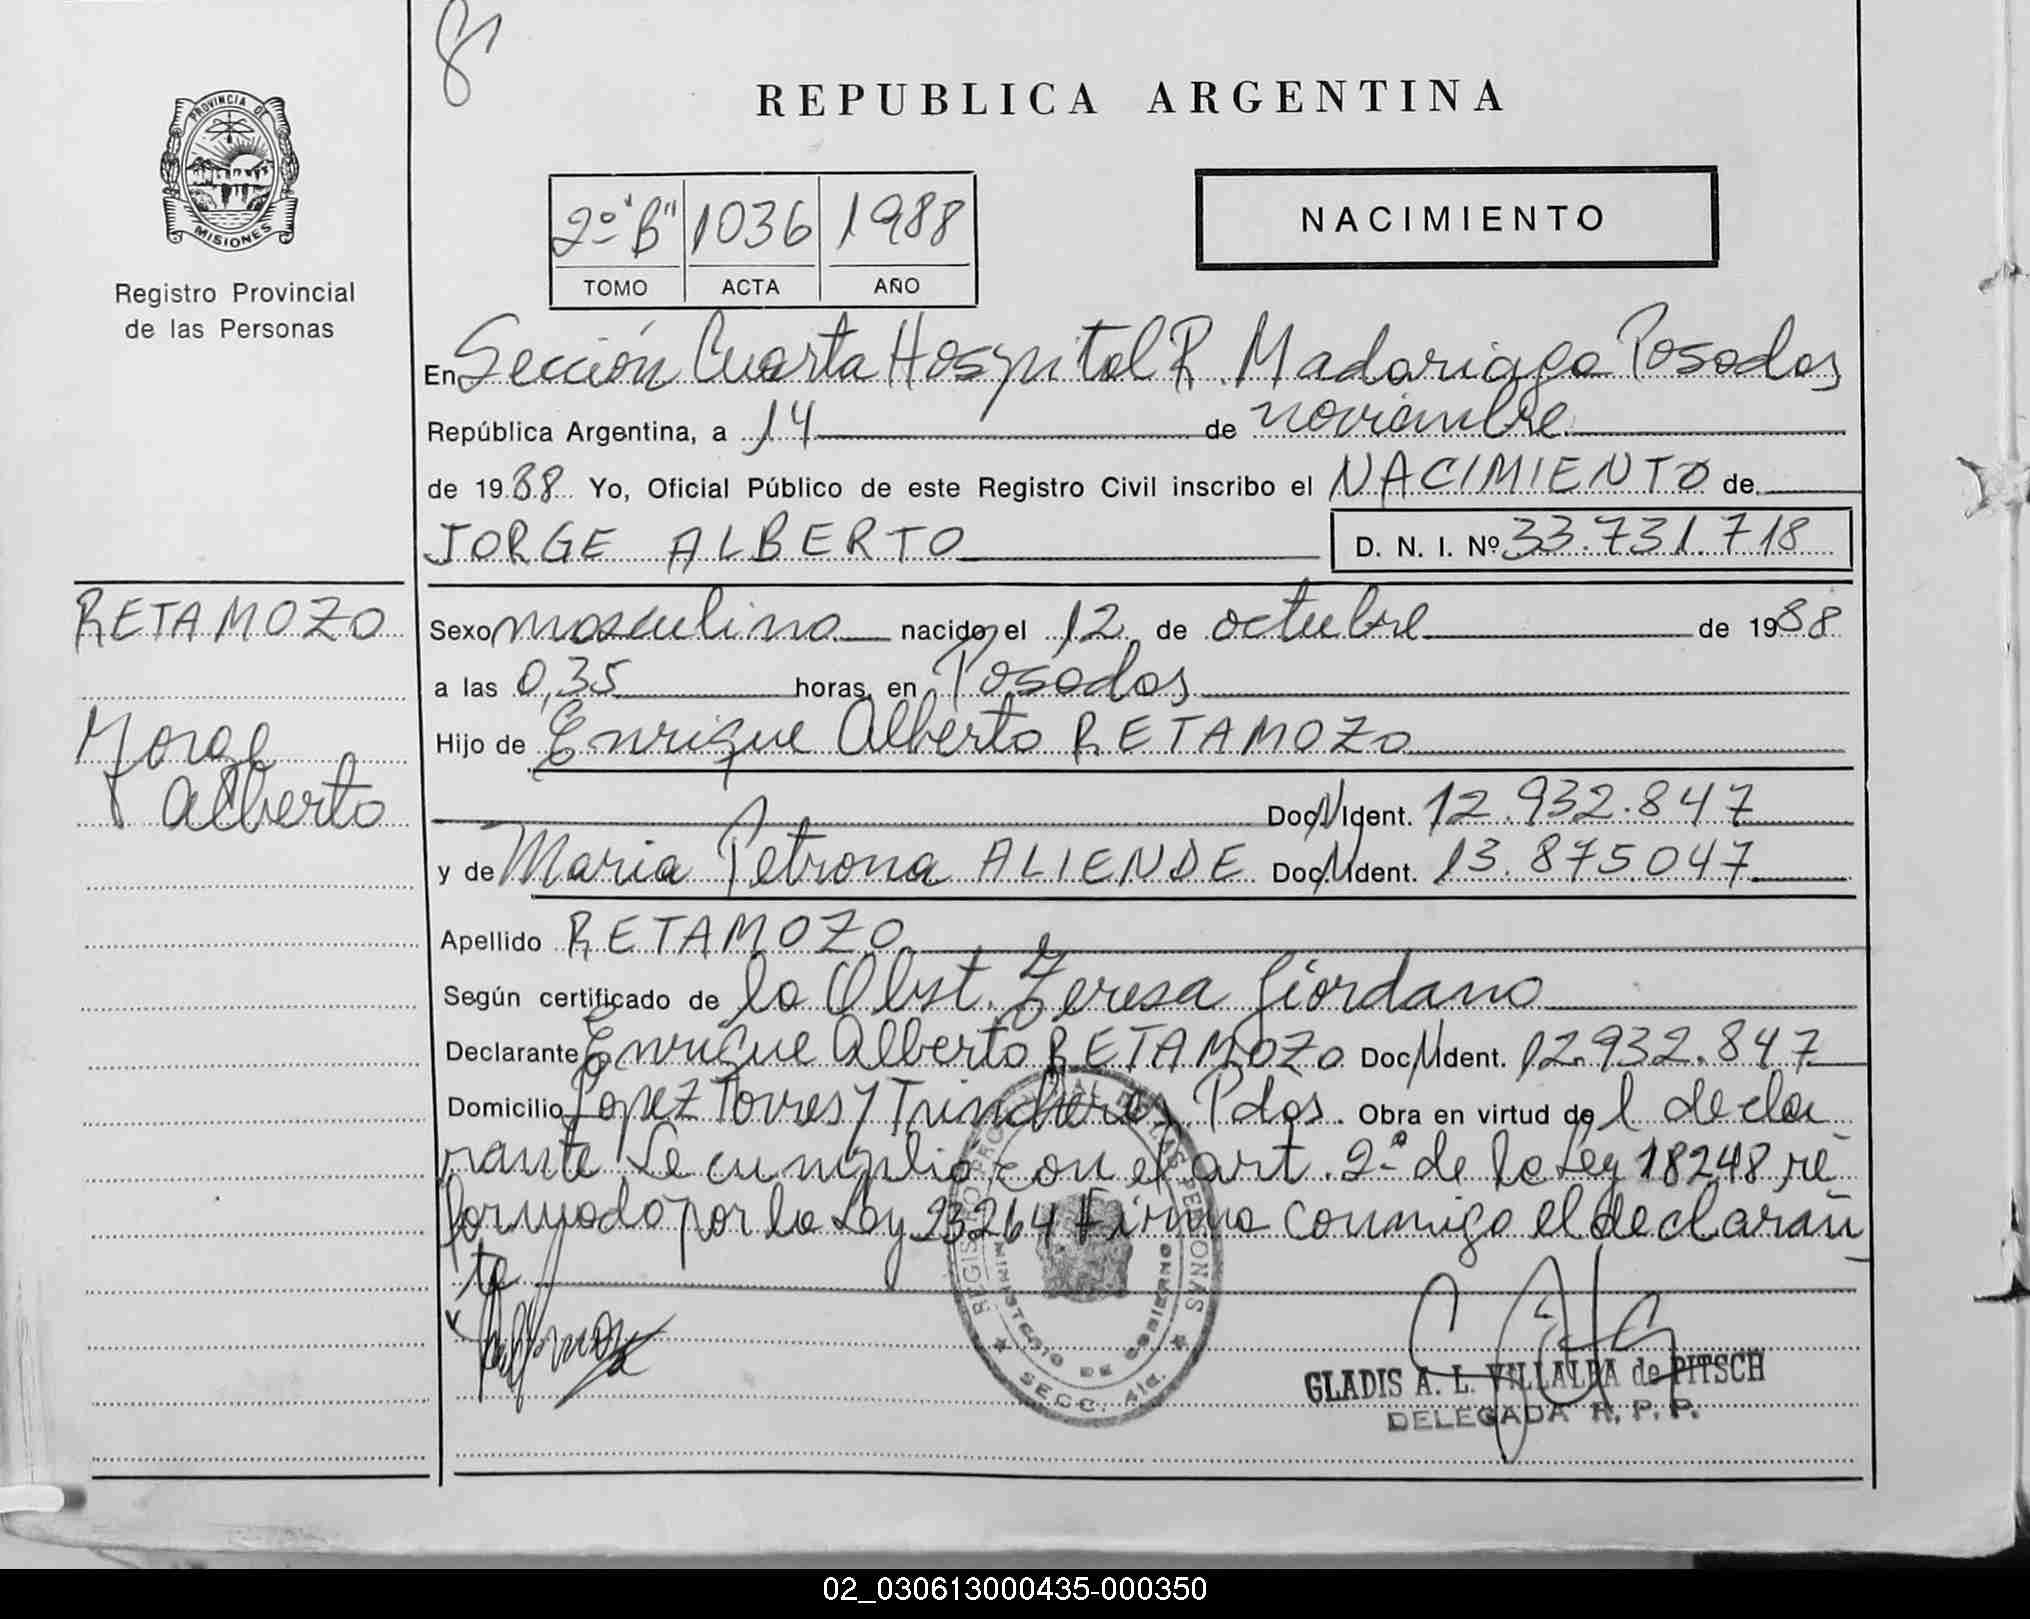 81
REPUBLICA ARGENTINA
PROVINCIA DE
MISIONES
Registro Provincial
de las Personas
2º "B" 1036 1988
TOMO ACTA AÑO
NACIMIENTO
En Sección Cuarta Hospital R. Madariaga Posadas
República Argentina, a 14 de noviembre
de 1988 Yo, Oficial Público de este Registro Civil inscribo el NACIMIENTO de
JORGE ALBERTO D. N. I. Nº 33.731.718
RETAMOZO
Jorge
Alberto
Sexo masculino nacido el 12 de octubre de 1988
a las 0,35 horas, en Posadas
Hijo de Enrique Alberto RETAMOZO
Doc. N. Ident. 12.932.847
y de Maria Petrona ALIENDE Doc. N. Ident. 13.875.047
Apellido RETAMOZO
Según certificado de la Obst. Teresa Giordano
Declarante Enrique Alberto RETAMOZO Doc. N. Ident. 12.932.847
Domicilio Lopez Torres y Trincheras Pdas. Obra en virtud del decla
rante Se cumplió con el art. 2º de la Ley 18248, re
formado por la Ley 23264 Firma conmigo el declaran
te
REGISTRO PROVINCIAL DE LAS PERSONAS
MINISTERIO DE GOBIERNO
SECC. 4ta.
GLADIS A. L. VILLALBA de PITSCH
DELEGADA R. P. P.
02_030613000435-000350